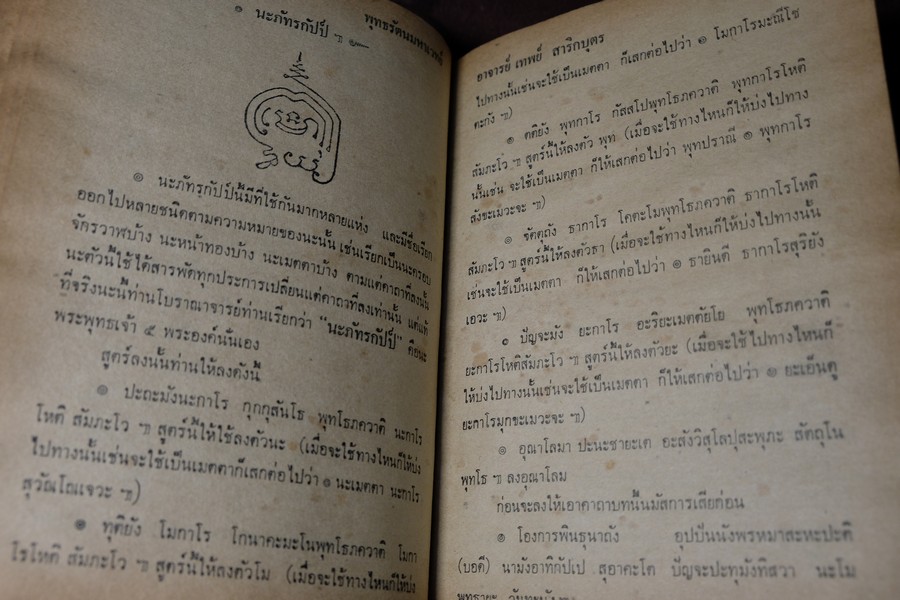 พุทธรัตนมหาเวทย์
๑ นะภัทรกัปป์ ฯ
๑ นะภัทรกัปป์นี้มีที่ใช้กันมากหลายแห่ง และมีชื่อเรียก
ออกไปหลายชนิดตามความหมายของนะนั้น เช่นเรียกเป็นนะครอบ
จักรวาฬบ้าง นะหน้าทองบ้าง นะเมตตาบ้าง ตามแต่คาถาที่ลงนั้น
นะตัวนี้ใช้ได้สารพัดทุกประการเปลี่ยนแต่คาถาที่ลงเท่านั้น แต่แท้
ที่จริงนะนี้ท่านโบราณาจารย์ท่านเรียกว่า "นะภัทรกัปป์" คือนะ
พระพุทธเจ้า ๕ พระองค์นั่นเอง
สูตร์ลงนั้นท่านให้ลงดังนี้
๑ ปะถะมังนะกาโร กุกกุสันโธ พุทโธภควาติ นะกาโร
โหติ สัมภะโว ฯ สูตร์นี้ให้ใช้ลงตัวนะ (เมื่อจะใช้ทางไหนก็ให้บ่ง
ไปทางนั้นเช่นจะใช้เป็นเมตตาก็เสกต่อไปว่า ๑ นะเมตตา นะกาโร
สุวัณโณเจวะ ฯ)
๑ ทุติยัง โมกาโร โกนาคะมะโนพุทโธภควาติ โมกา
โรโหติ สัมภะโว ฯ สูตร์นี้ให้ลงตัวโม (เมื่อจะใช้ทางไหนก็ให้บ่ง
อาจารย์ เทพย์ สาริกบุตร
ไปทางนั้นเช่นจะใช้เป็นเมตตา ก็เสกต่อไปว่า ๑ โมกาโรมะณีโช
ตะกัง ฯ)
๑ ตติยัง พุทกาโร กัสสโปพุทโธภควาติ พุทกาโรโหติ
สัมภะโว ฯ สูตร์นี้ให้ลงตัว พุท (เมื่อจะใช้ทางไหนก็ให้บ่งไปทาง
นั้นเช่น จะใช้เป็นเมตตา ก็ให้เสกต่อไปว่า พุทปราณี ๑ พุทกาโร
สังขะเมวะจะ ฯ)
๑ จัตตุถัง ธากาโร โคตะโมพุทโธภควาติ ธากาโรโหติ
สัมภะโว ฯ สูตร์นี้ให้ลงตัวธา (เมื่อจะใช้ทางไหนก็ให้บ่งไปทางนั้น
เช่นจะใช้เป็นเมตตา ก็ให้เสกต่อไปว่า ๑ ธายินดี ธากาโรสุริยัง
เอวะ ฯ)
๑ ปัญจะมัง ยะกาโร อะริยะเมตตัยโย พุทโธภควาติ
ยะกาโรโหติสัมภะโว ฯ สูตร์นี้ให้ลงตัวยะ (เมื่อจะใช้ไปทางไหนก็
ให้บ่งไปทางนั้นเช่นจะใช้เป็นเมตตา ก็ให้เสกต่อไปว่า ๑ ยะเอ็นดู
ยะกาโรมุกขะเมวะจะ ฯ)
๑ อุณาโลมา ปะนะชายะเต อะสังวิสุโลปุสะพุภะ สัตถุโน
พุทโธ ฯ ลงอุณาโลม
ก่อนจะลงให้เอาคาถาบทนี้นมัสการเสียก่อน
๑ โองการพินธุนาถัง อุปปันนังพรหมาสะหะปะติ
(บอดี) นามังอาทิกัปเป สุอาคะโต ปัญจะปะทุมังทิสวา นะโม
พุทธายะ